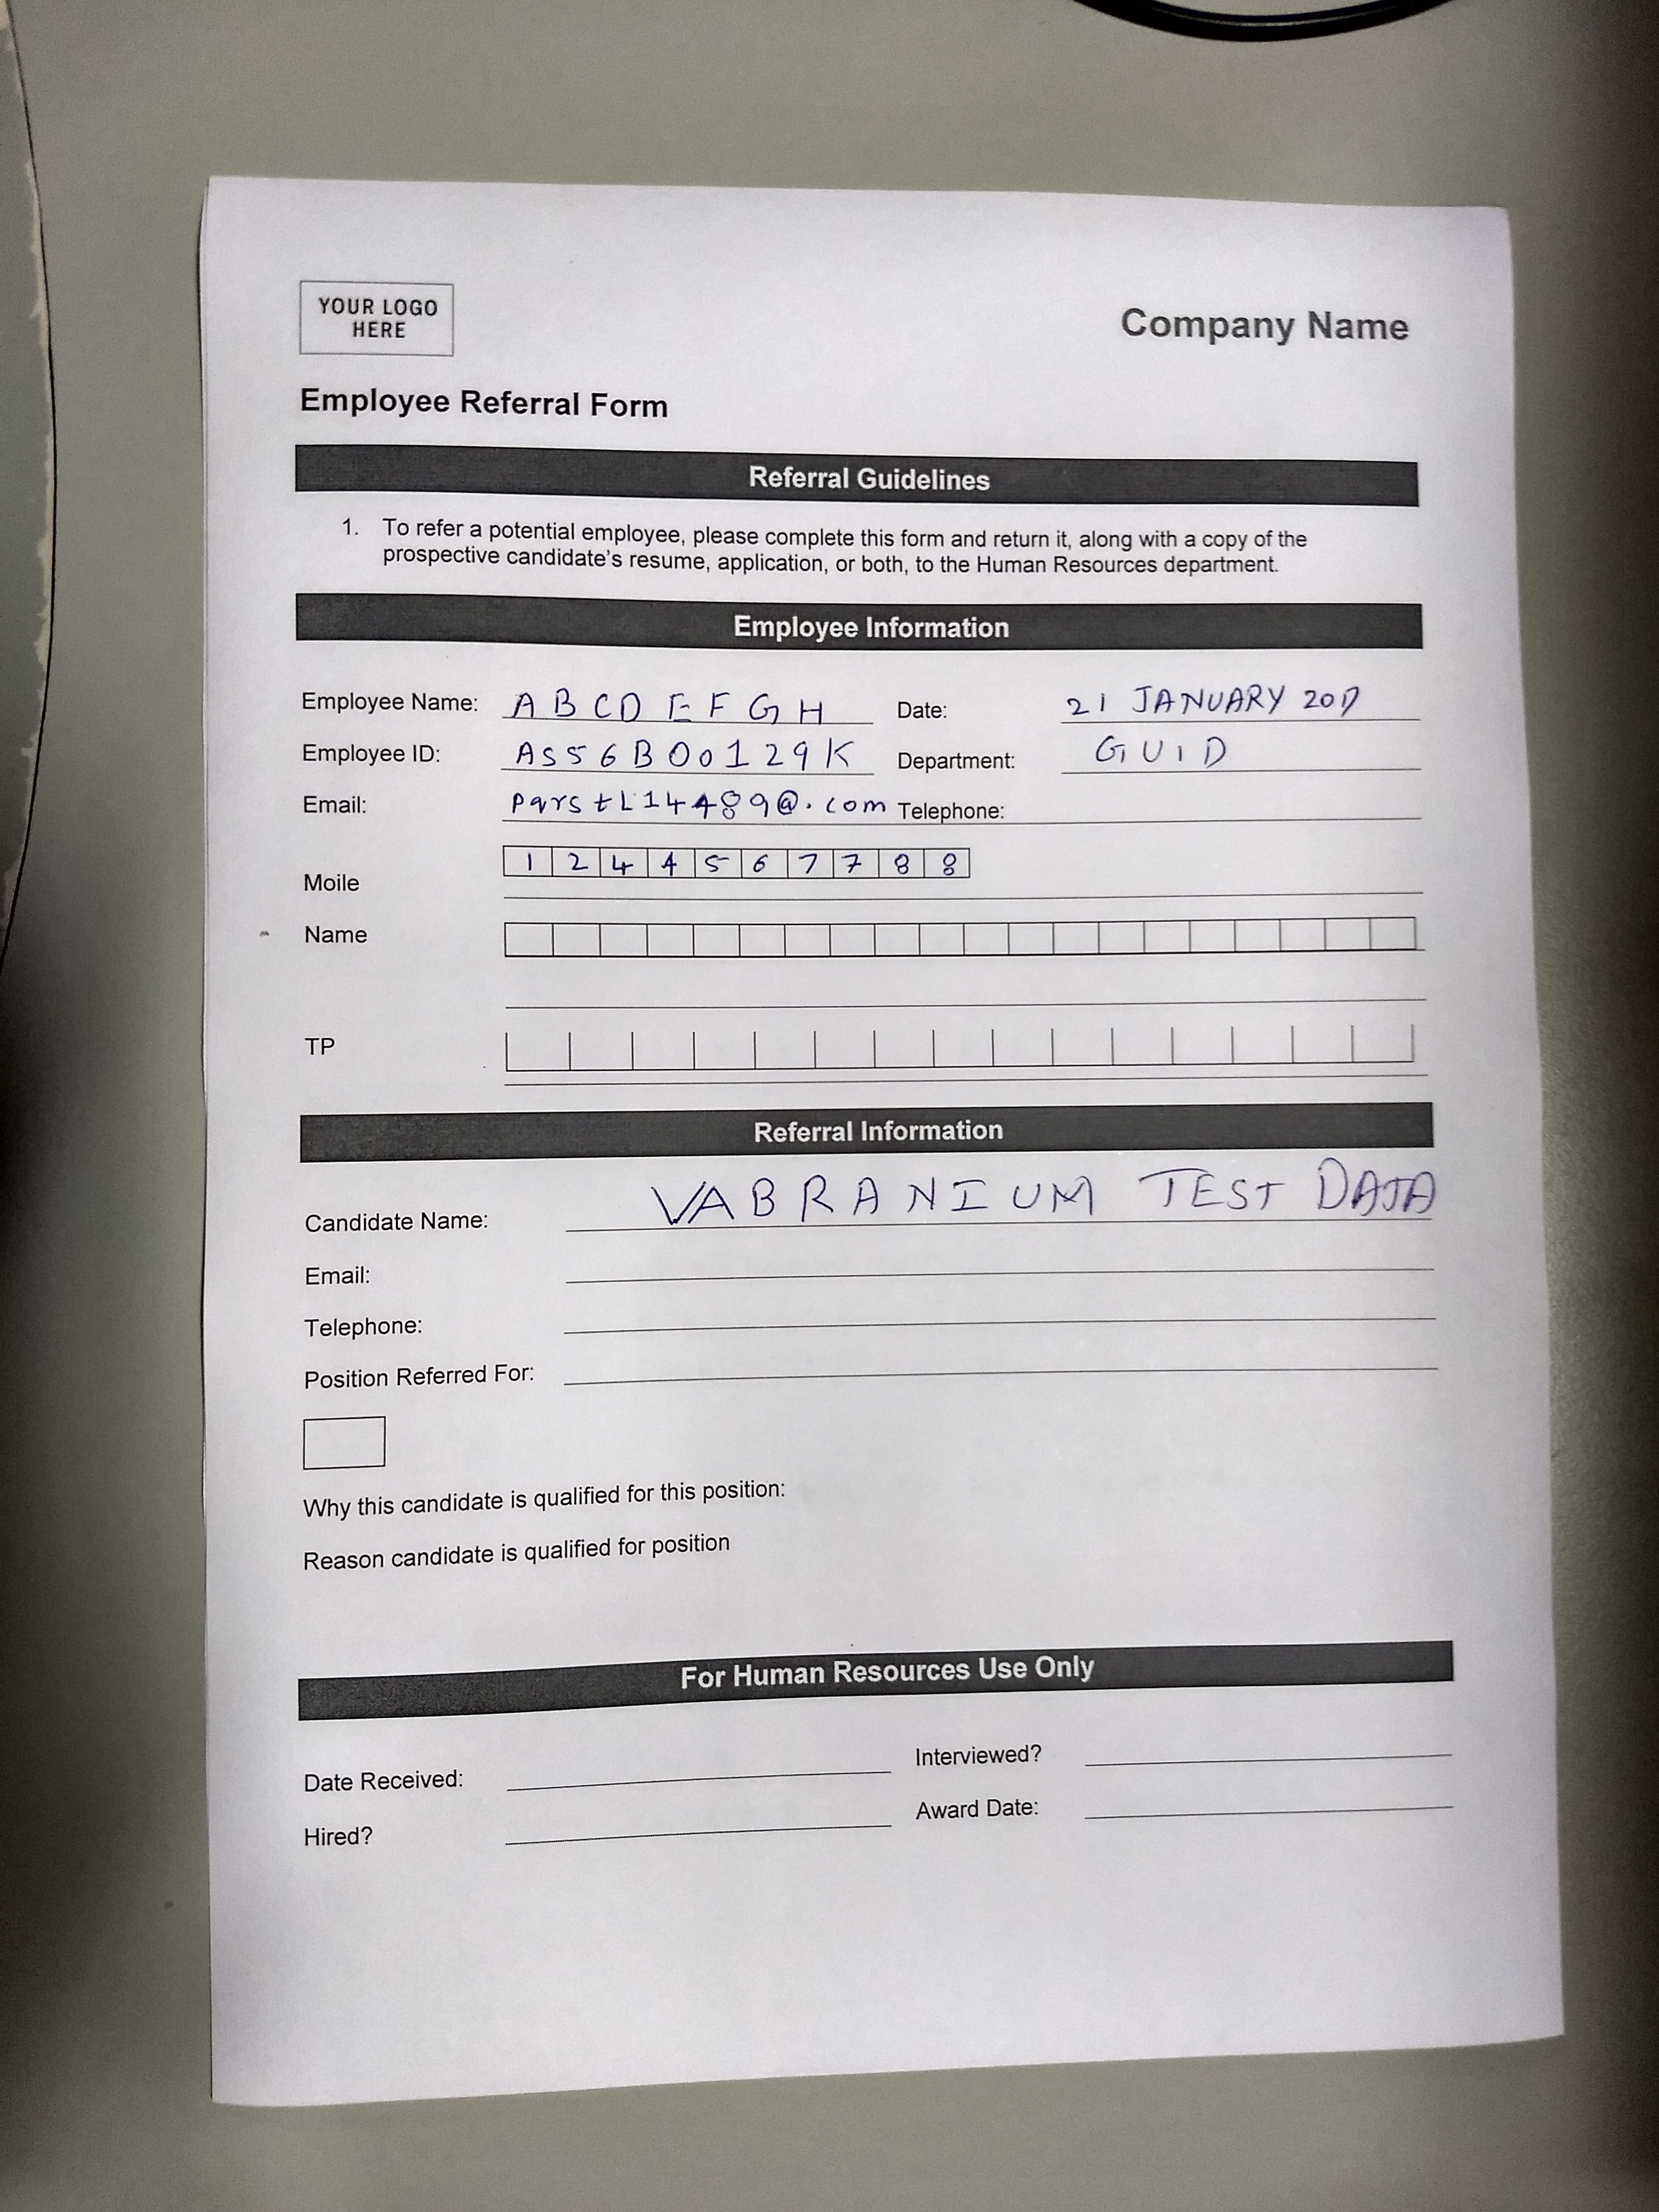 YOUR LOGO
HERE
Company Name
Employee Referral Form
Referral Guidelines
1. To refer a potential employee, please complete this form and return it, along with a copy of the
prospective candidate's resume, application, or both, to the Human Resources department.
Employee Information
Employee Name: A B C D E F G H Date: 21 JANUARY 2017
Employee ID: A S 5 6 B 0 0 1 2 9 K Department: G U I D
Email: pqrstL14489@.com Telephone:
Moile 1 2 4 4 5 6 7 7 8 8
Name
TP
Referral Information
Candidate Name: VABRANIUM TEST DATA
Email:
Telephone:
Position Referred For:
Why this candidate is qualified for this position:
Reason candidate is qualified for position
For Human Resources Use Only
Date Received: Interviewed?
Hired? Award Date: